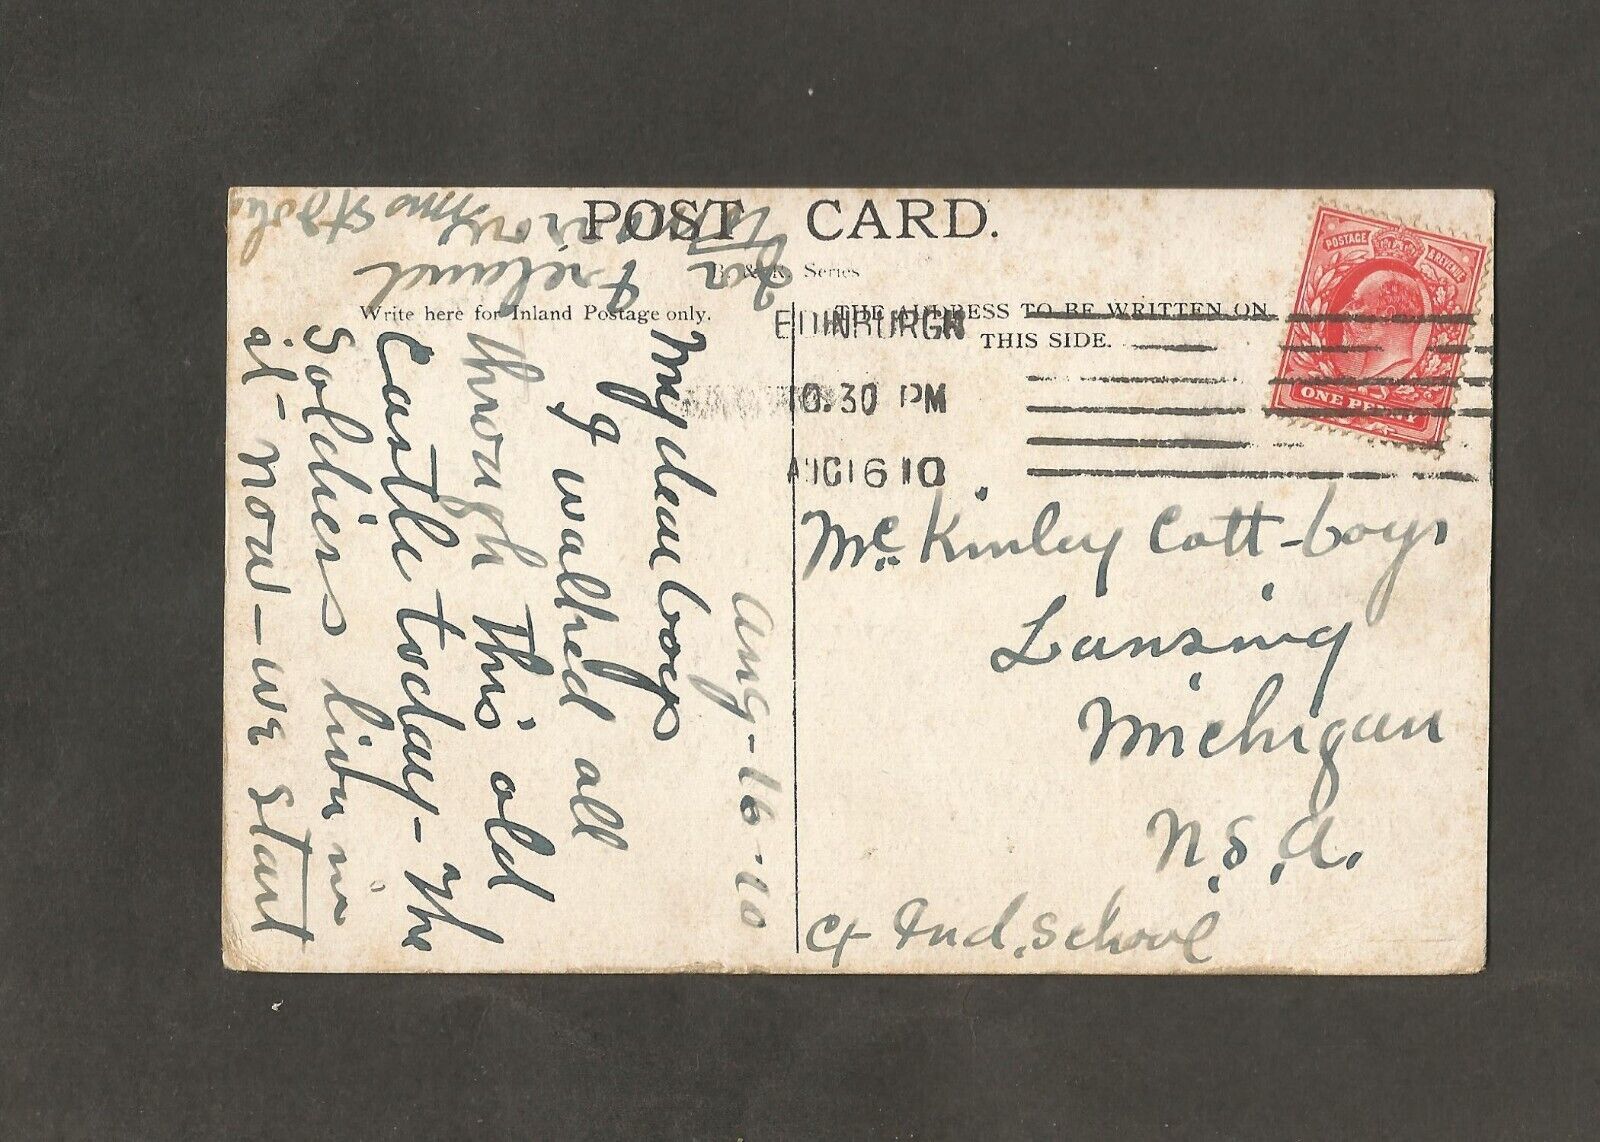 POST CARD.
B. & R. Series
Write here for Inland Postage only.
THE ADDRESS TO BE WRITTEN ON
THIS SIDE.
POSTAGE & REVENUE
ONE PENNY
EDINBURGH
10.30 PM
AUG 16 10
Aug-16-10
My dear boys
I walked all
through this old
Castle today - The
Soldiers live in
it - now - we start
for Ireland
tomorrow
Mc Kinley Cott-boys
Lansing
Michigan
U.S.A.
Ind. School